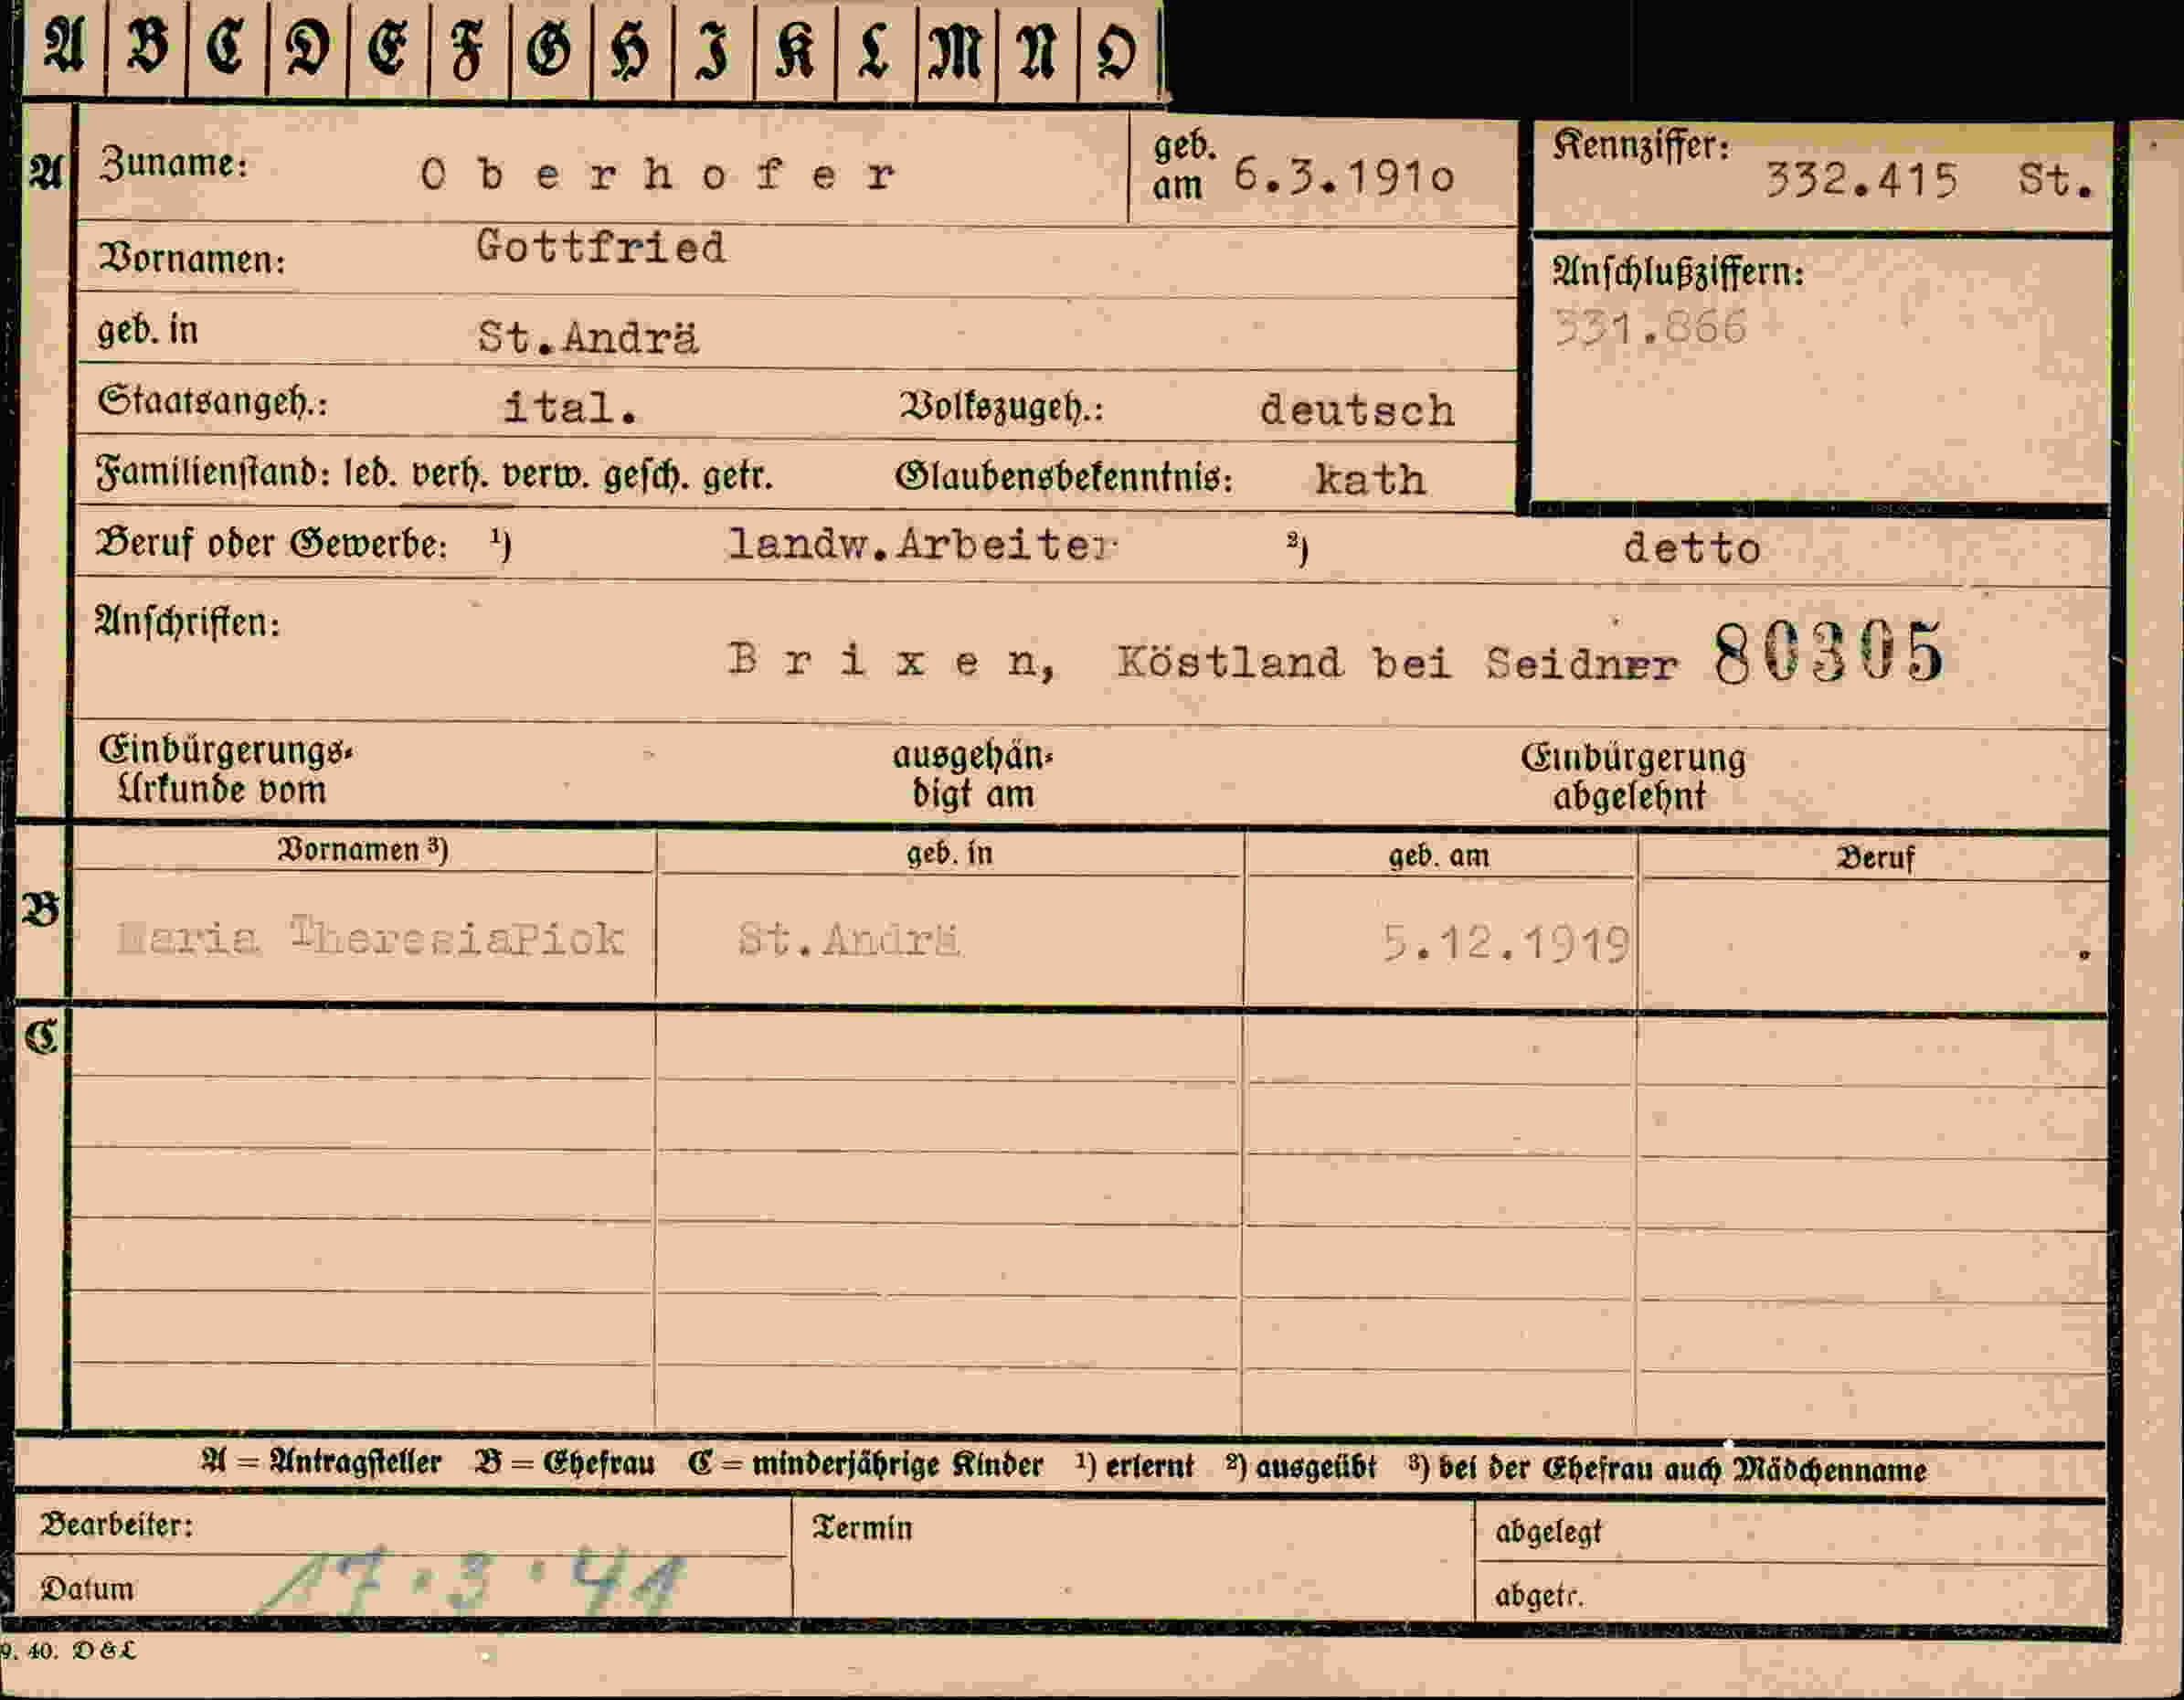 A B C D E F G H I K L M N O
A Zuname: Oberhofer geb. am 6.3.191o Kennziffer: 332.415 St.
Vornamen: Gottfried
Anschlußziffern:
331.866
geb. in St.Andrä
Staatsangeh.: ital. Volkszugeh.: deutsch
Familienstand: led. verh. verw. gesch. getr. Glaubensbekenntnis: kath
Beruf oder Gewerbe: ¹) landw.Arbeiter ²) detto
Anschriften:
Brixen, Köstland bei Seidner 80305
Einbürgerungs-
Urkunde vom
ausgehän-
digt am
Einbürgerung
abgelehnt
Vornamen ³) geb. in geb. am Beruf
B Maria TheresiaPiok St.Andrä 5.12.1919
C
A = Antragsteller B = Ehefrau C = minderjährige Kinder ¹) erlernt ²) ausgeübt ³) bei der Ehefrau auch Mädchenname
Bearbeiter: Termin abgelegt
Datum 17.3.41 abgetr.
9. 40. D & L